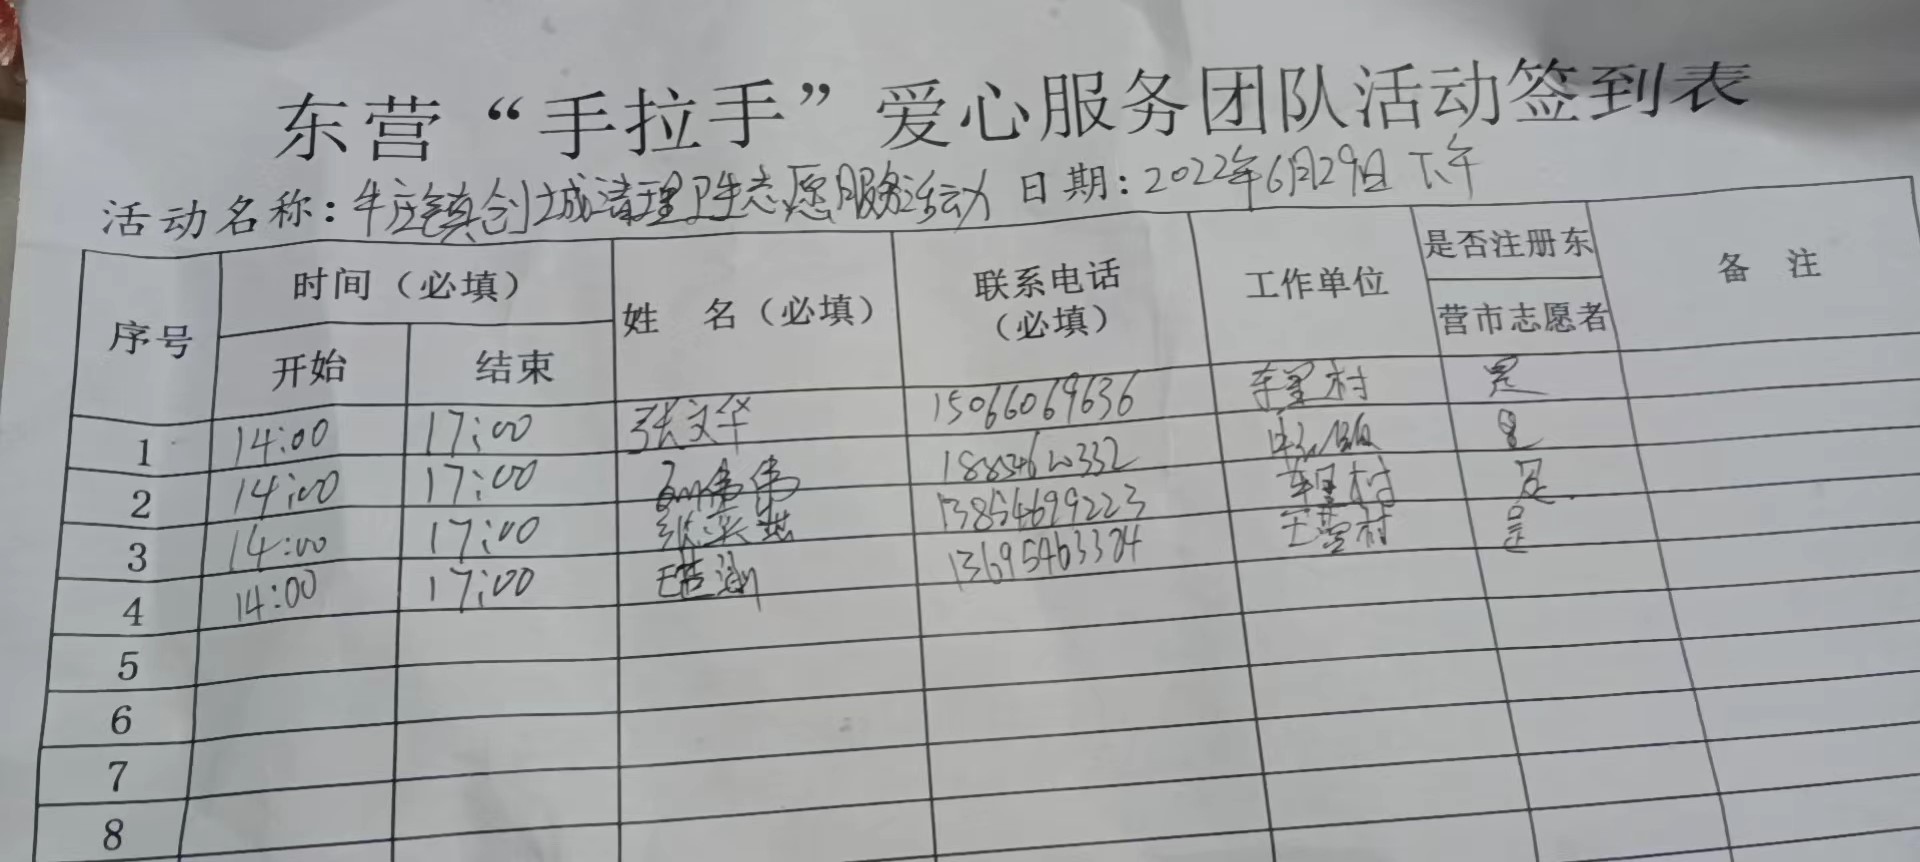 东营“手拉手”爱心服务团队活动签到表
活动名称：牛庄镇创城清理卫生志愿服务活动 日期：2022年6月29日下午
序号 时间（必填） 姓 名（必填） 联系电话（必填） 工作单位 是否注册东营市志愿者 备 注
开始 结束
1 14:00 17:00 张文华 15066069636 村 是
2 14:00 17:00 伟 是
3 14:00 17:00 张 13854699223 村 是
4 14:00 17:00 王营村 是
5
6
7
8